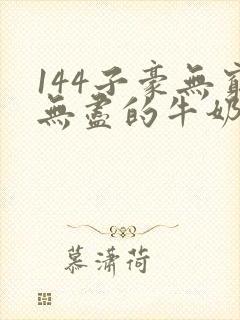 144子豪無窮
無盡的牛奶
慕瀟荷